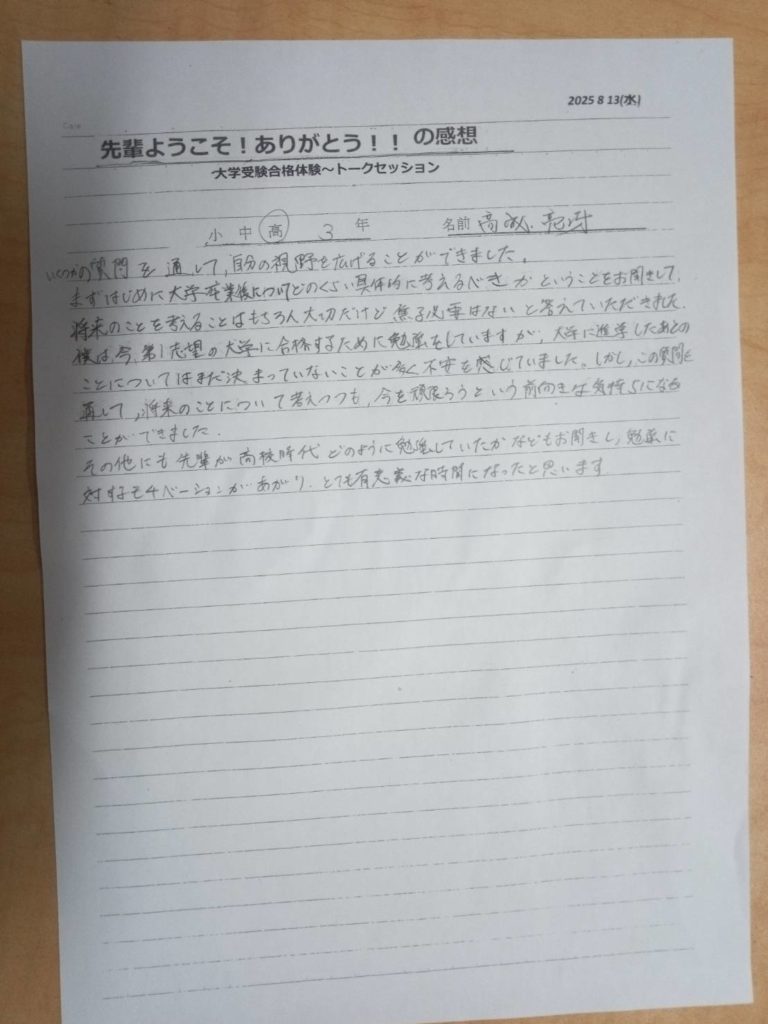 2025 8 13(水)
Date
先輩ようこそ！ありがとう！！ の感想
大学受験合格体験～トークセッション
小 中 高 3 年 名前 高
いくつかの質問を通して、自分の視野を広げることができました。
まずはじめに大学卒業後についてどのくらい具体的に考えるべきかということをお聞きして、
将来のことを考えることはもちろん大切だけど焦る必要はないと答えていただきました。
僕は今、第1志望の大学に合格するために勉強をしていますが、大学に進学したあとの
ことについてはまだ決まっていないことが多く不安を感じていました。しかし、この質問を
して、将来のことについて考えつつも、今を頑張ろうという前向きな気持ちになる
ことができました。
その他にも先輩が高校時代どのように勉強していたかなどもお聞きし、勉強に
対するモチベーションがあがり、とても有意義な時間になったと思います